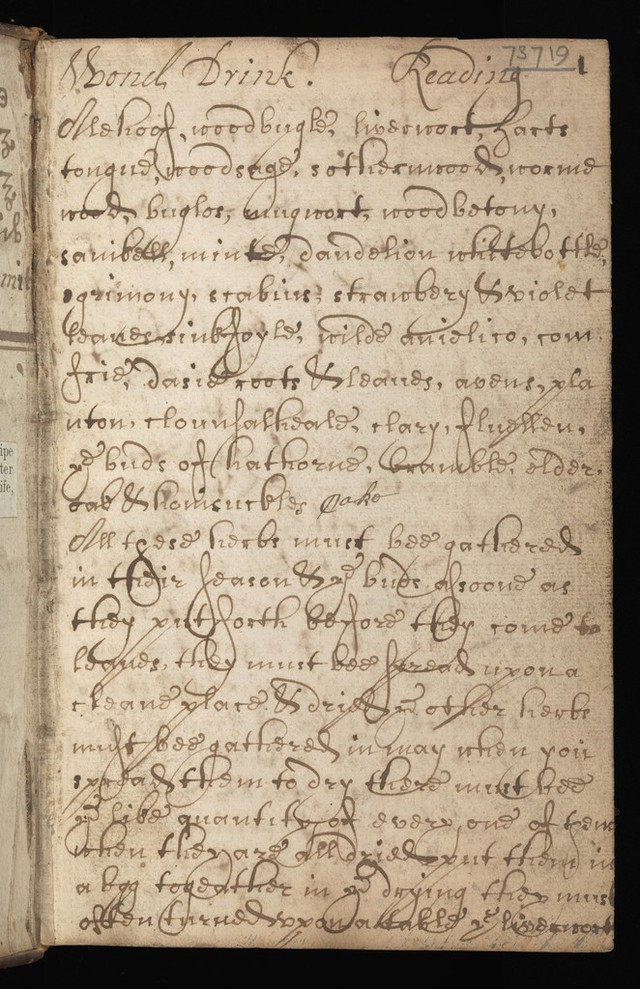 73719 1
Wond Drink. Reading
Alehoof, woodbugle, liverwort, harts
tongue, woodsage, sothernwood, worme
wood, buglos, mugwort, woodbetony,
sanikell, minte, dandelion whittebottle,
agrimony, scabius, strawbery & violet
leaves sinkfoyle, wilde angelico, com
frie, dasie roots & leaves, avens, pla
nton, clounsalheale, clary, fluellen,
ye buds of hathorne, bramble, elder,
oak & honisuckles Oake
All these herbs must bee gathered
in their season & ye buds assoone as
they put forth before they come to
leaves, they must bee spread upon a
cleane place & dried ye other herbs
must bee gathered in may when you
spread them to dry there must bee
ye like quantity of every one of them
when they are all dried put them in
a bgg togeather in ye drying they must
often turned upon a table ye liverwort
ipe
ter
ife,